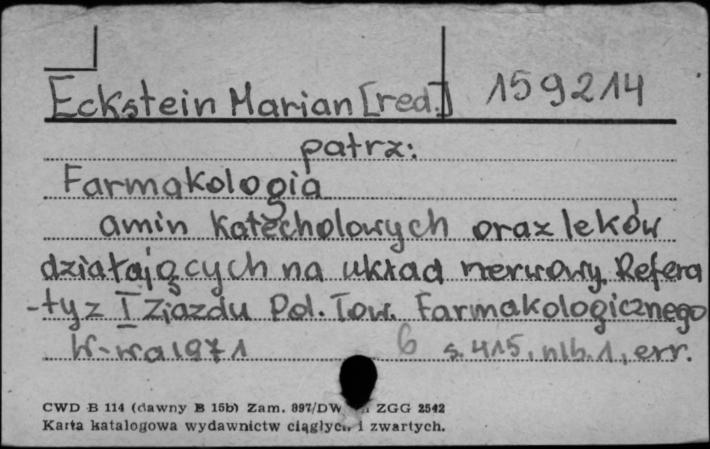 Eckstein Marian [red.] 159214
patrz:
Farmakologia
amin katecholowych oraz leków
działających na układ nerwowy. Refera
-ty z I Zjazdu Pol. Tow. Farmakologicznego
W-wa 1971 6 s. 415, nlb. 1, err.
CWD B 114 (dawny B 15b) Zam. 897/DW ZGG 2542
Karta katalogowa wydawnictw ciągłych i zwartych.